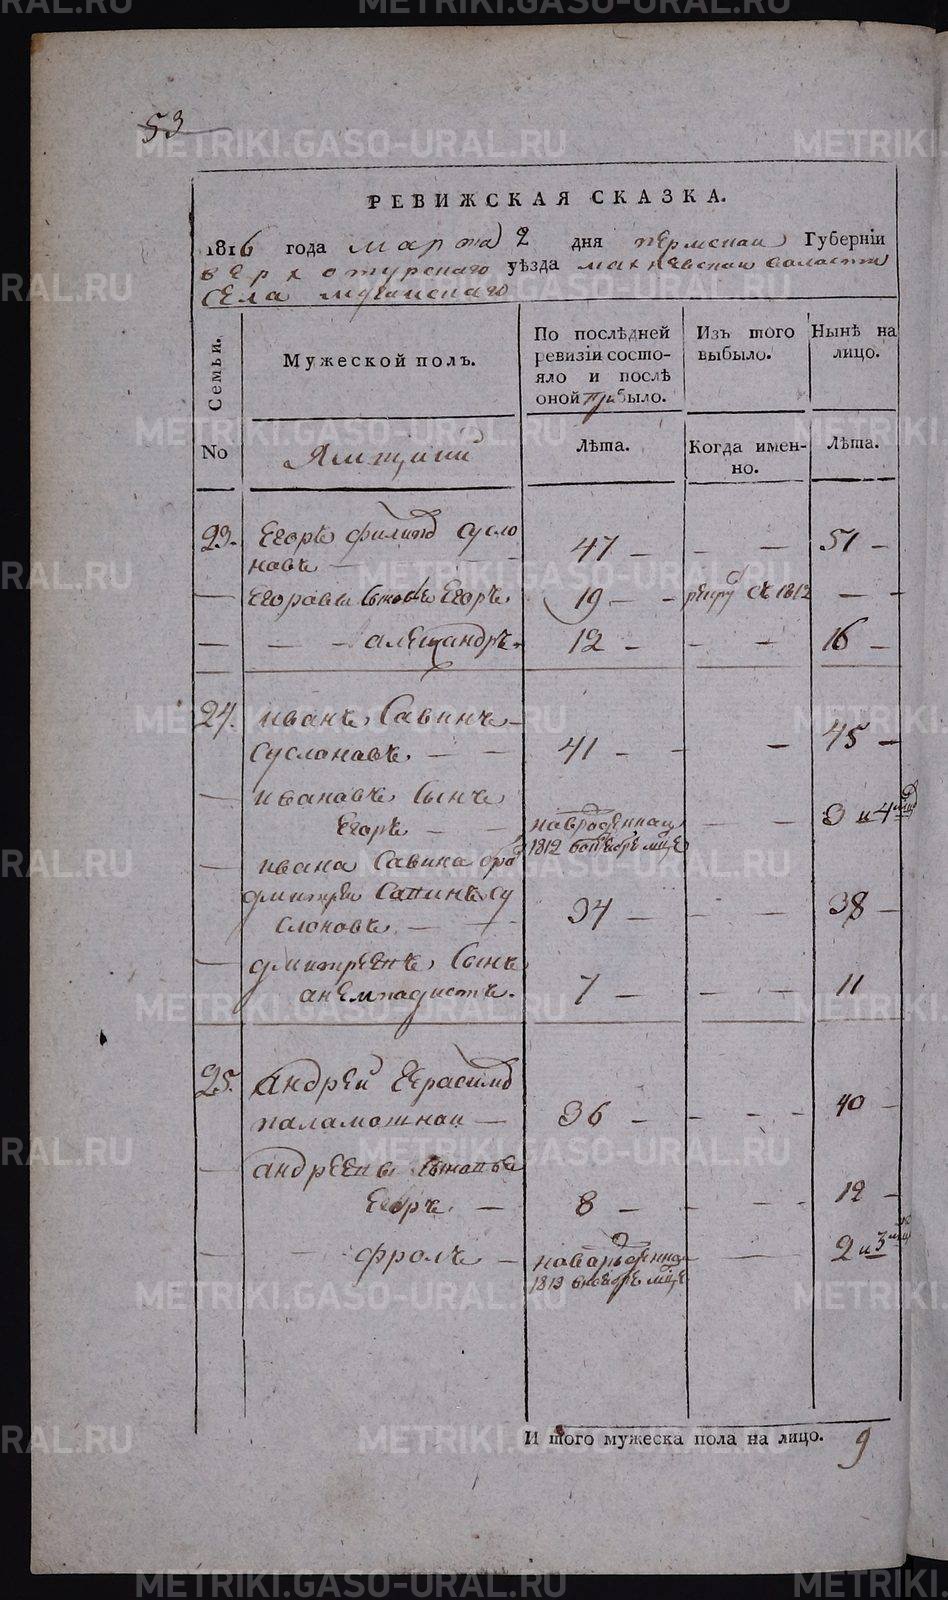 53
РЕВИЖСКАЯ СКАЗКА.
1816 года марта 2 дня пермскаи Губерніи
верхотурскаго уѣзда махневскаи валасти
села мугайскаго
Семьи.
Мужеской полъ.
По послѣдней ревизіи состояло и послѣ оной прибыло.
Изъ того выбыло.
Нынѣ на лицо.
No
Ямщики
Лѣта.
Когда именно.
Лѣта.
23. Егоръ филипо сусло
навъ 47 51
Егоравы Егоръ 19 рекру съ 1812
александръ 12 16
24. иванъ Савинъ
суслонавъ 41 45
ивановъ Сынъ
Егоръ наврожденнаи 3 и 4 мцо
1812 мцѣ
ивана Савина бра
дмитреи Савинъ су
слоновъ 34 38
дмитреевъ Сынъ
анемпадистъ. 7 11
25. Андрей Герасимо
паламошнаи 36 40
андреевы
Егоръ 8 12
фролъ новарожденна 2 и 3
1813 мцѣ
И того мужеска пола на лицо. 9
METRIKI.GASO-URAL.RU